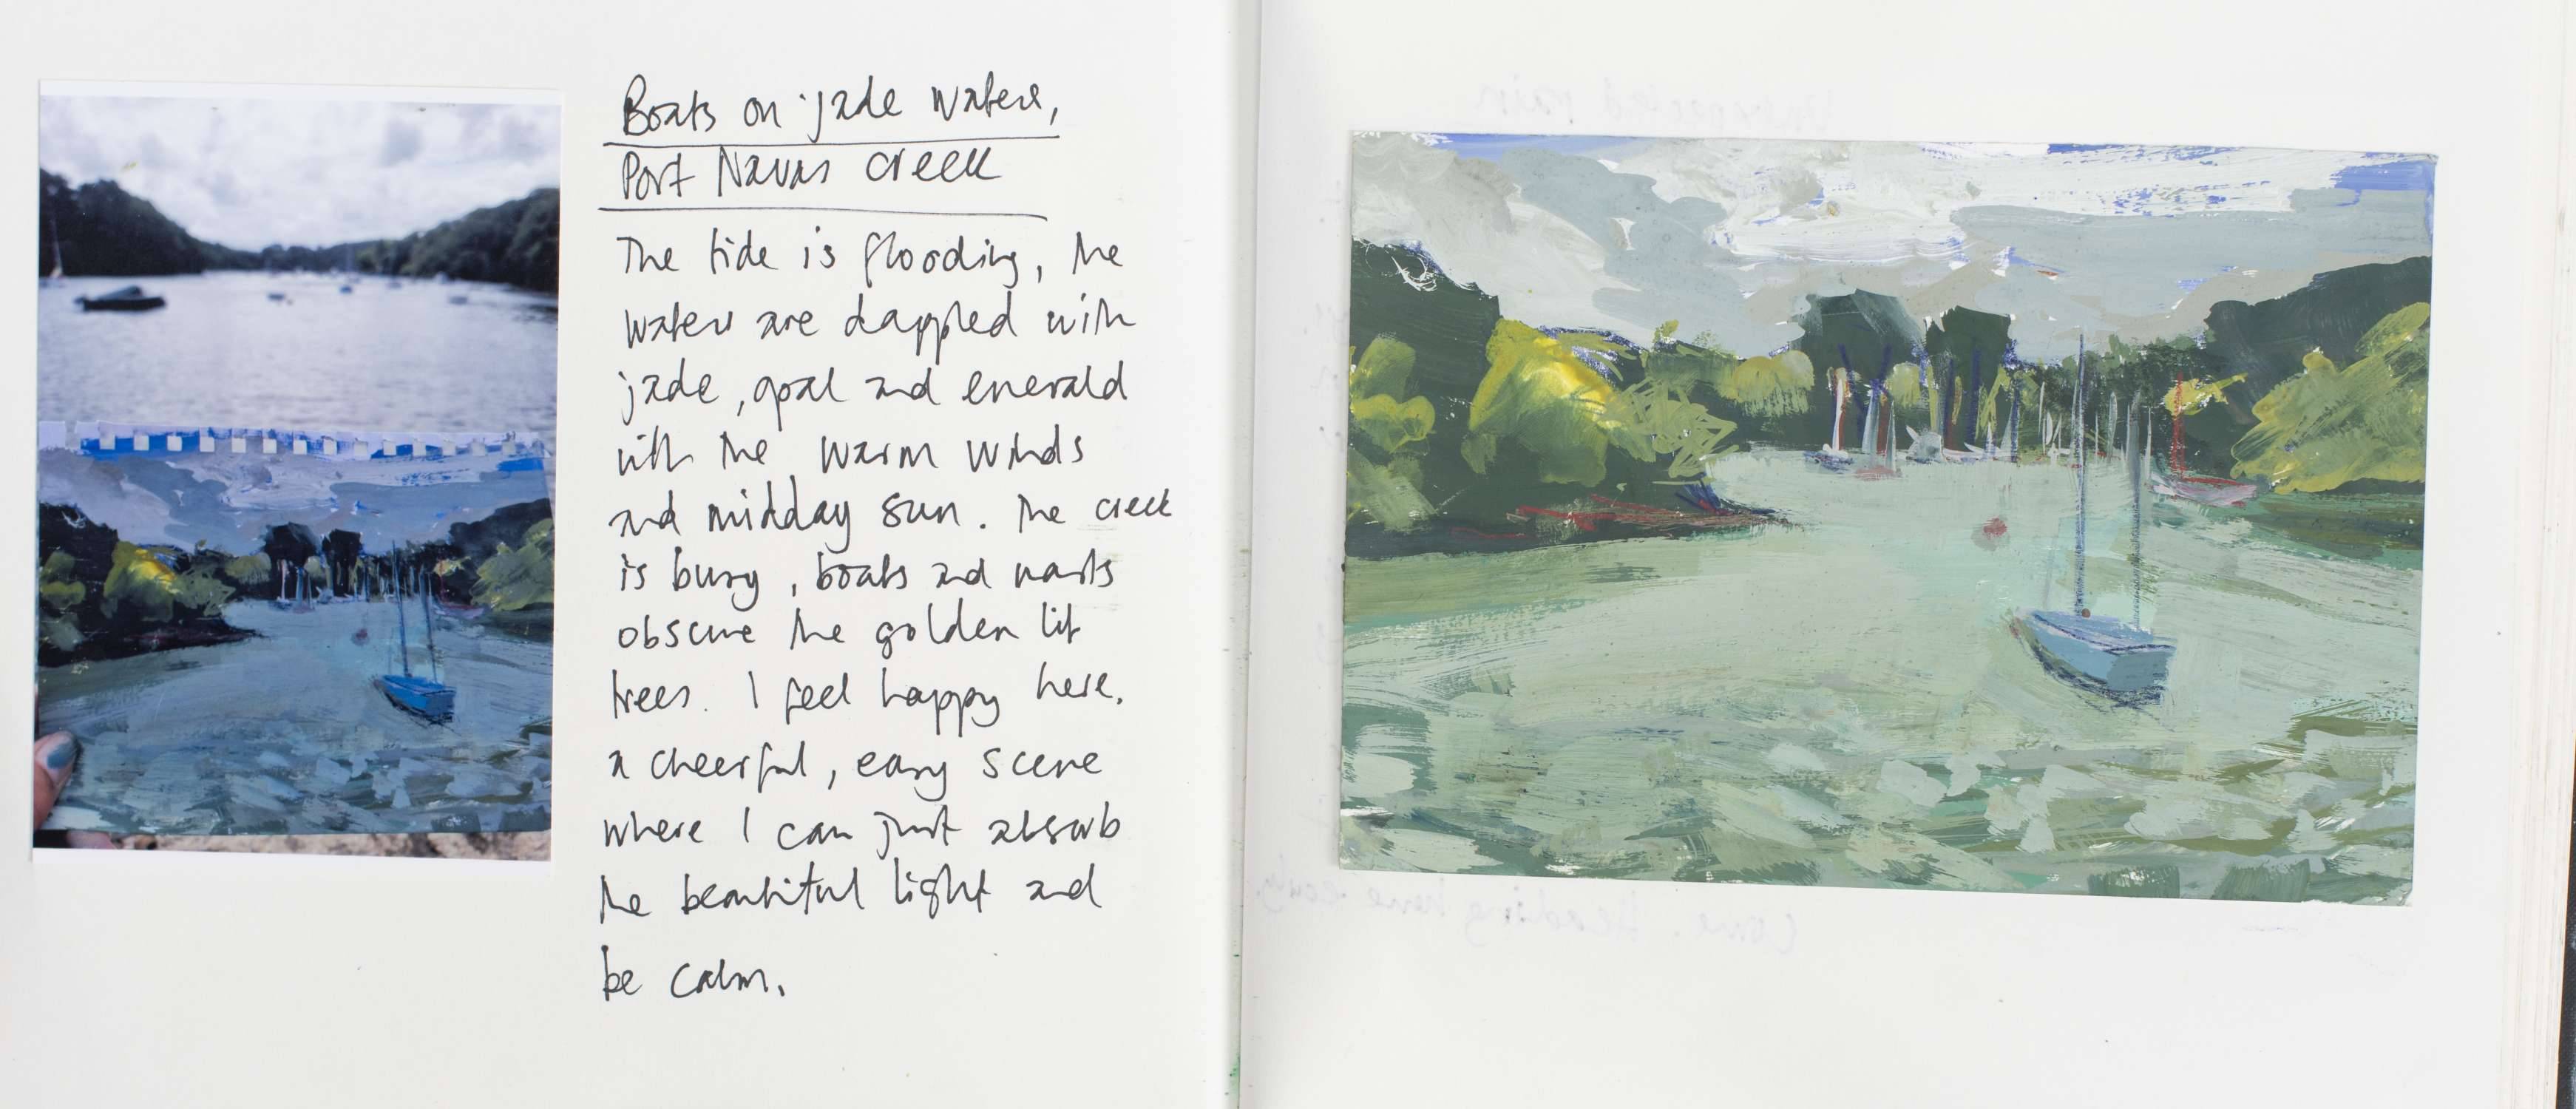 Boats on jade waters,
Port Navas creek
The tide is flooding, the
waters are dappled with
jade, opal and emerald
with the warm winds
and midday sun. The creek
is busy, boats and masts
obscure the golden lit
trees. I feel happy here.
a cheerful, easy scene
where I can just absorb
the beautiful light and
be calm.